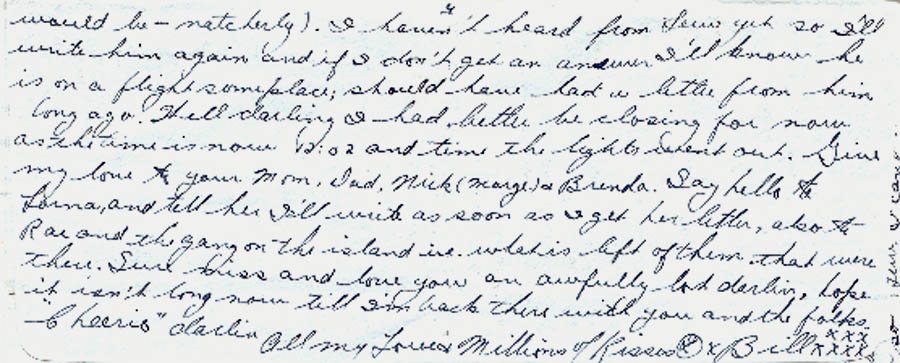 would be - natcherly). I haven't heard from Lew yet so I'll
write him again and if I don't get an answer I'll know he
is on a flight someplace; should have had a letter from him
long ago. Well darling I had better be closing for now
as the time is now 12:02 and time the lights went out. Give
my love to your Mom, Dad, Nick (Marge) & Brenda. Say hello to
Lorna, and tell her I'll write as soon as I get her letter, also to
Rae and the gang on the island ie. what is left of them that were
there. Sure miss and love you an awfully lot darlin, hope
it isn't long now till I'm back there with you and the folks.
"Cheerio" darlin
All my Love & Millions of Kisses & Bill xxx
xxxx